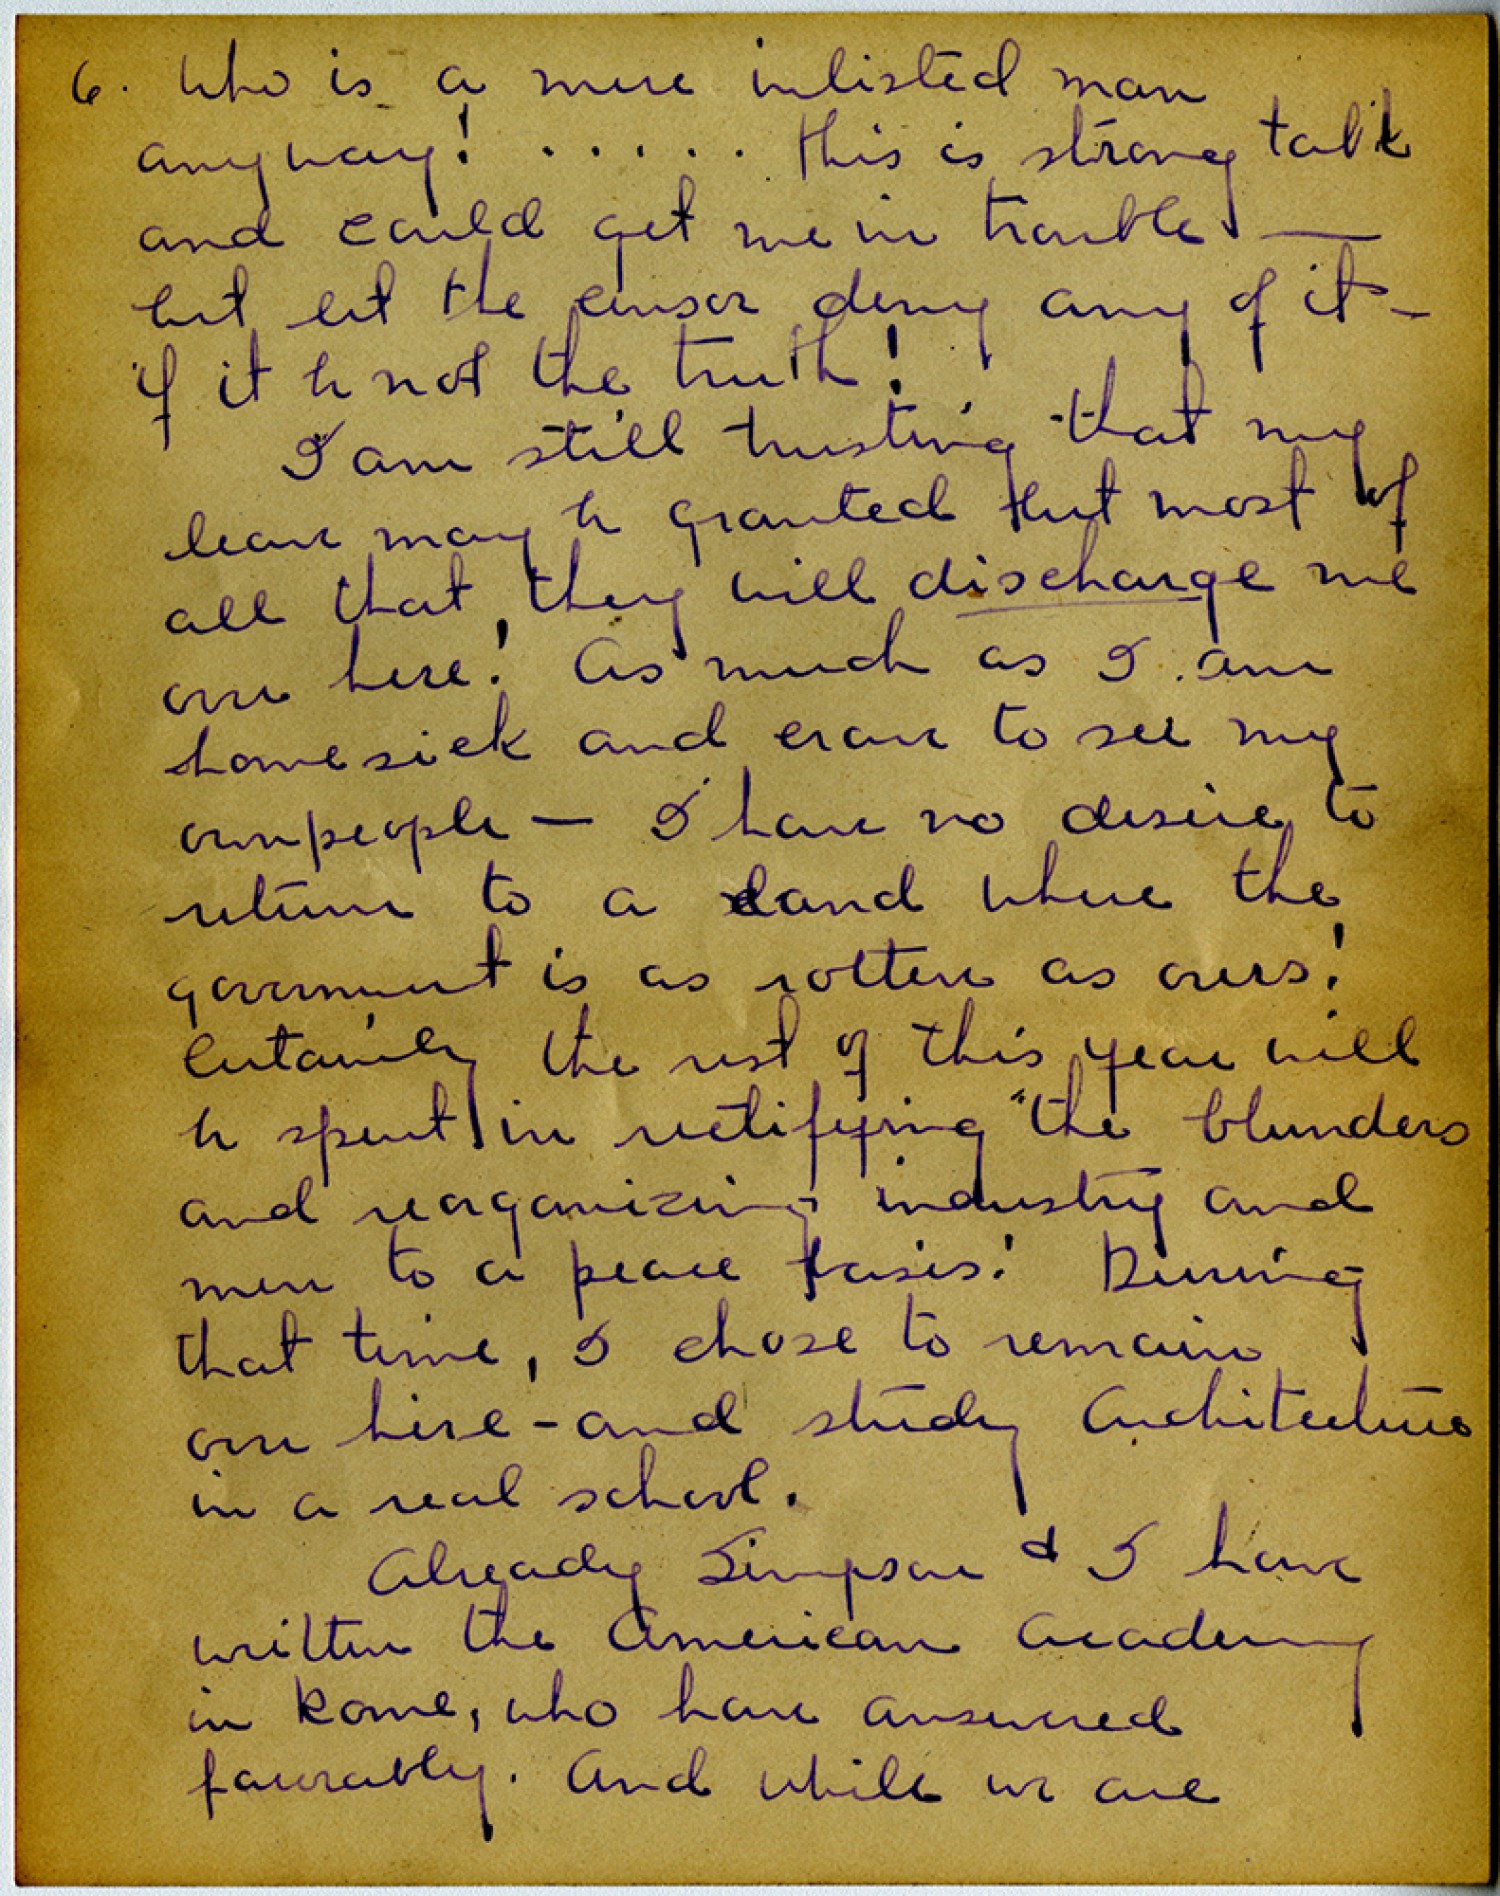 6. Who is a mere inlisted man
anyway! ..... This is strong talk
and could get me in trouble —
but let the censor deny any of it —
if it be not the truth!
I am still trusting that my
leave may be granted but most of
all that, they will discharge me
over here! As much as I am
homesick and crave to see my
own people — I have no desire to
return to a land where the
government is as rotten as ours!
Certainly the rest of this year will
be spent in rectifying the blunders
and reorganizing industry and
men to a peace basis! During
that time, I chose to remain
over here - and study Architecture
in a real school.
Already Simpson & I have
written the American Academy
in Rome, who have answered
favorably. And while we are